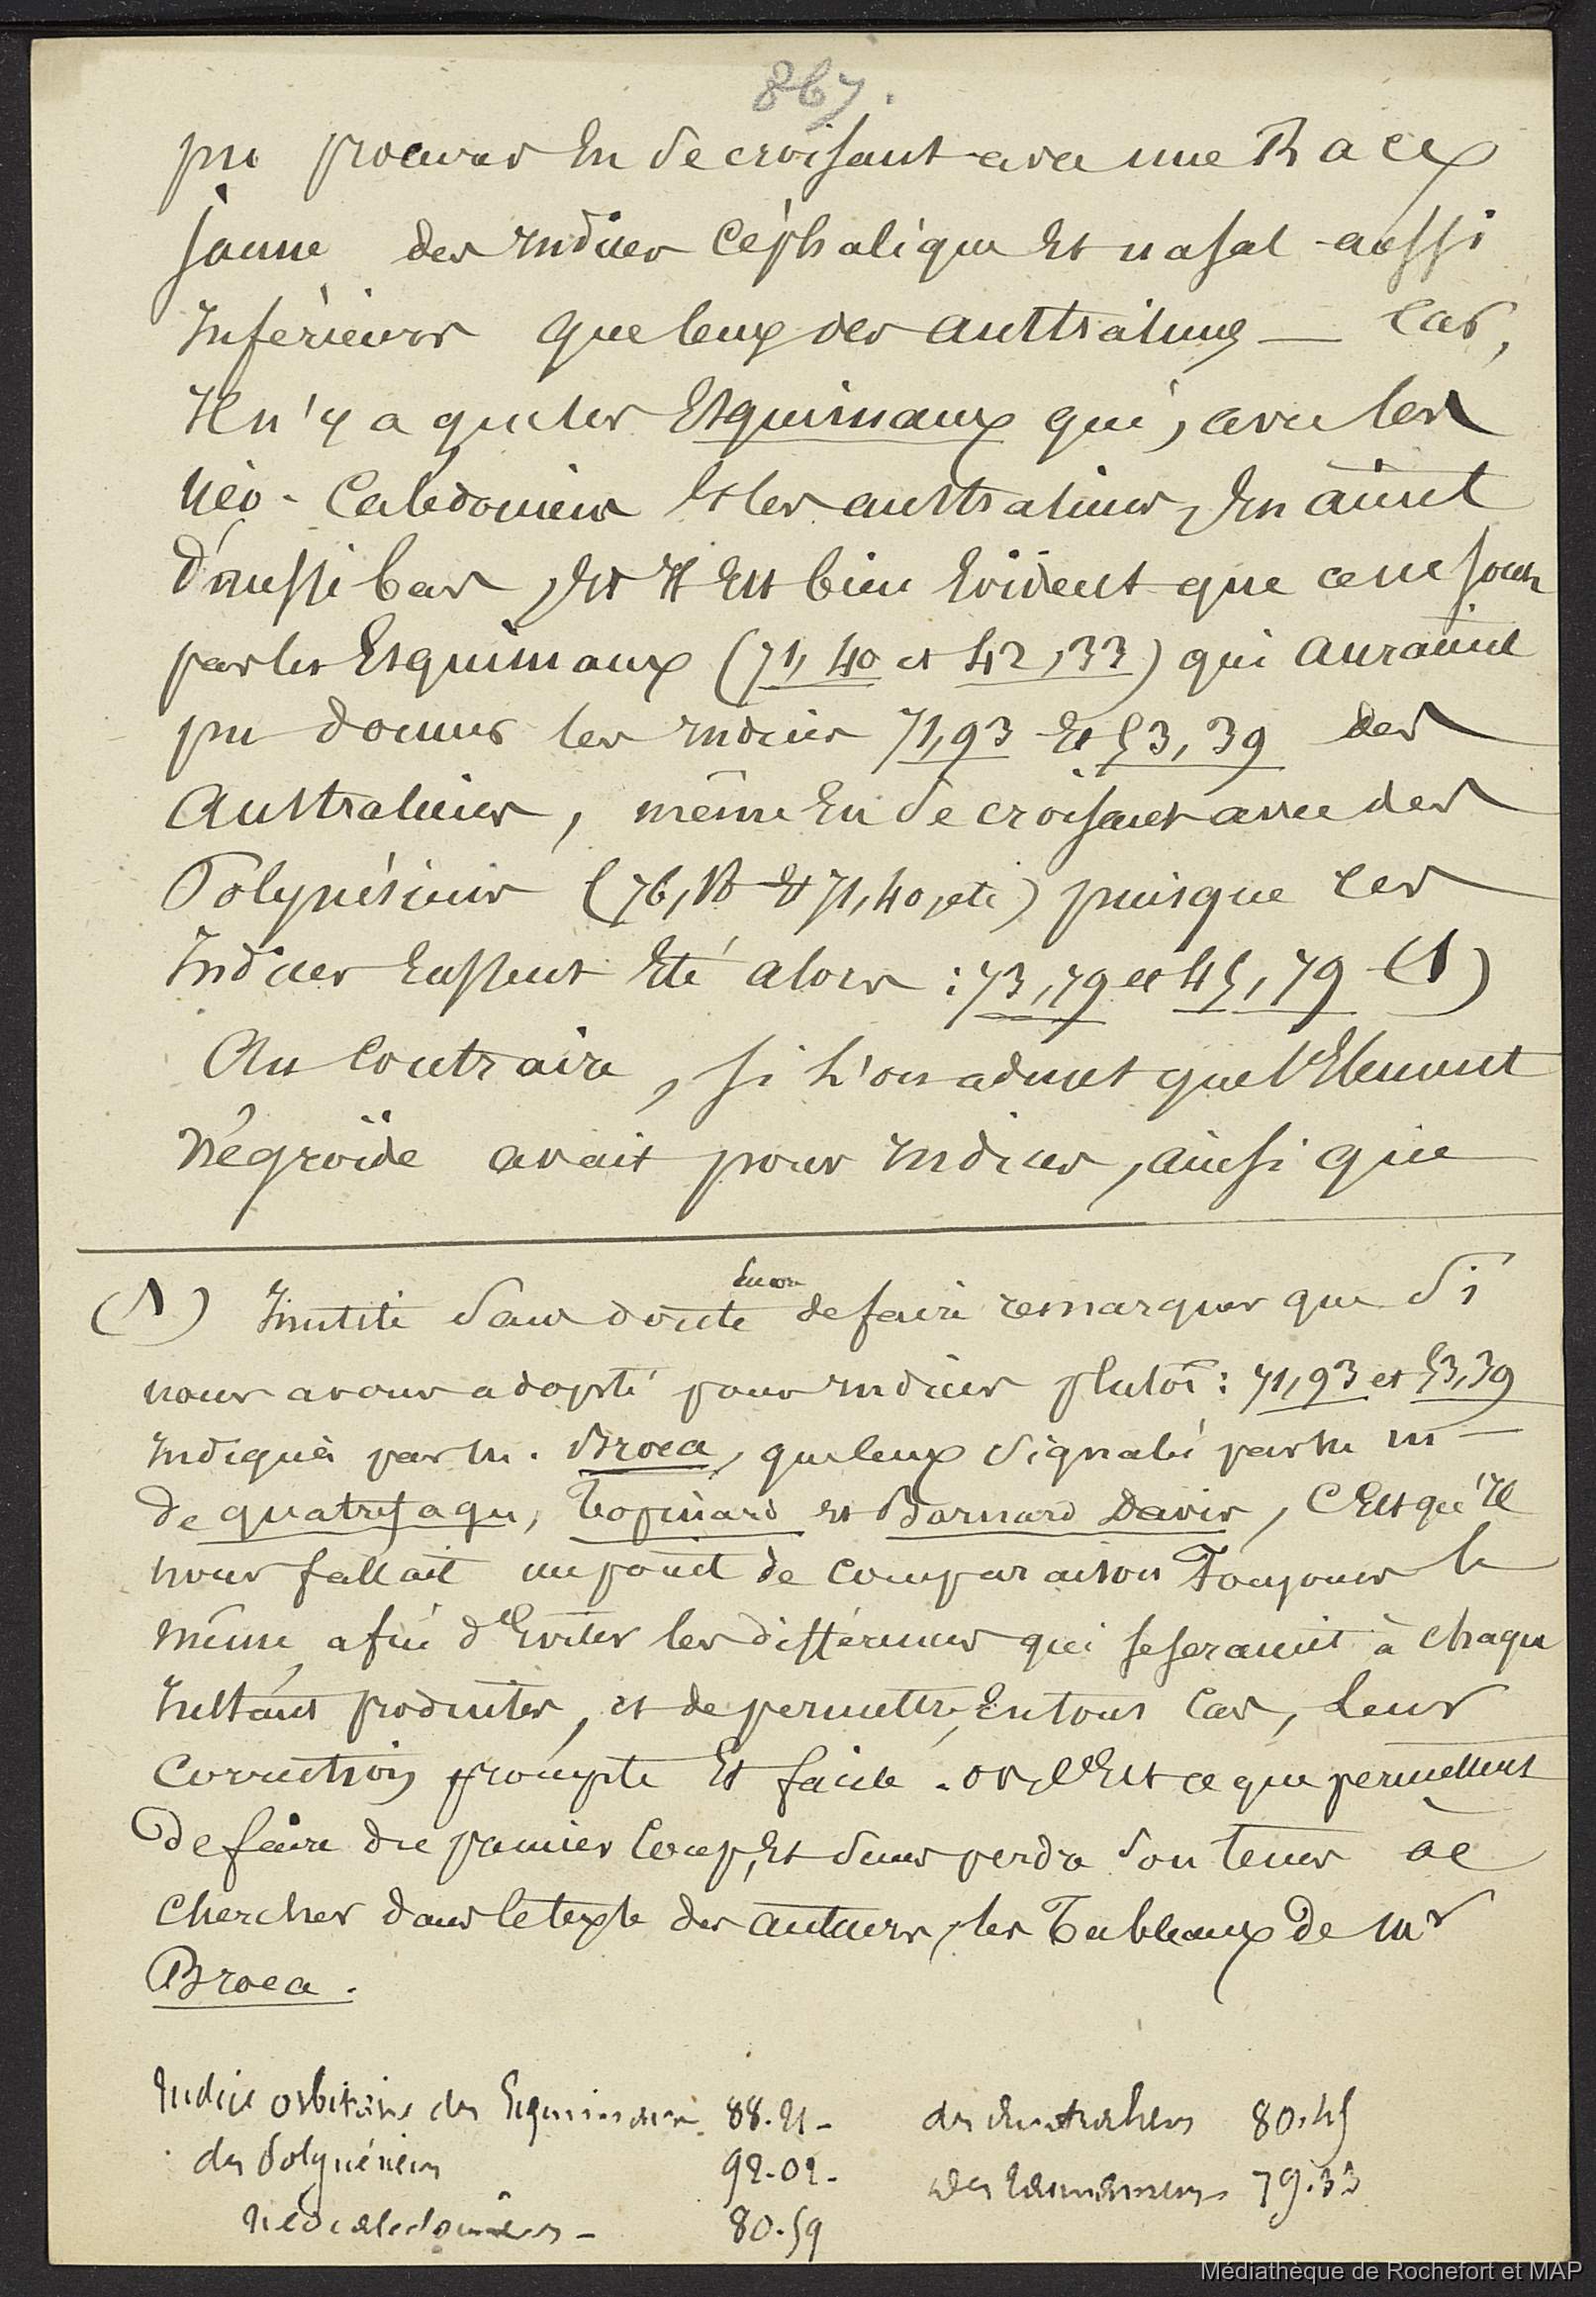 867.
pu procurer en se croisant avec une Race
jaune des indices céphalique et nasal aussi
inférieurs que ceux des australiens — Car,
il n'y a que les Esquimaux qui, avec les
néo-Calédoniens et les australiens, en aient
d'aussi bas, et il est bien évident que ce ne sont
pas les Esquimaux (71,40 et 42,33) qui auraient
pu donner les indices 71,93 et 53,39 des
Australiens, même en se croisant avec des
Polynésiens (76,18 et 71,40, etc) puisque ces
Indices eussent été alors : 73,79 et 45,79 (1)
Au Contraire, si l'on admet que l'Element
négroïde avait pour indices, ainsi que
(1) Inutile sans doute encore de faire remarquer que si
nous avons adopté pour indices plutôt : 71,93 et 53,39
indiqués par M. Broca, que ceux signalés par M M
de quatrefages, Topinard et Barnard Davis, C'est qu'il
nous fallait un point de comparaison Toujours le
même, afin d'Eviter les différences qui se seraient à chaque
instant produites, et de permettre, en tous Cas, leur
correction prompte et facile. or, C'Est ce que permettent
de faire du premier Coup, et sans perdre son tems à
chercher dans le texte des auteurs, les Tableaux de Mr
Broca.
Indice orbitaire des Esquimaux 88.21 - des Australiens 80.45
des Polynésiens 92.02 - des Tasmaniens 79.33
Néocalédoniens - 80.59
Médiathèque de Rochefort et MAP